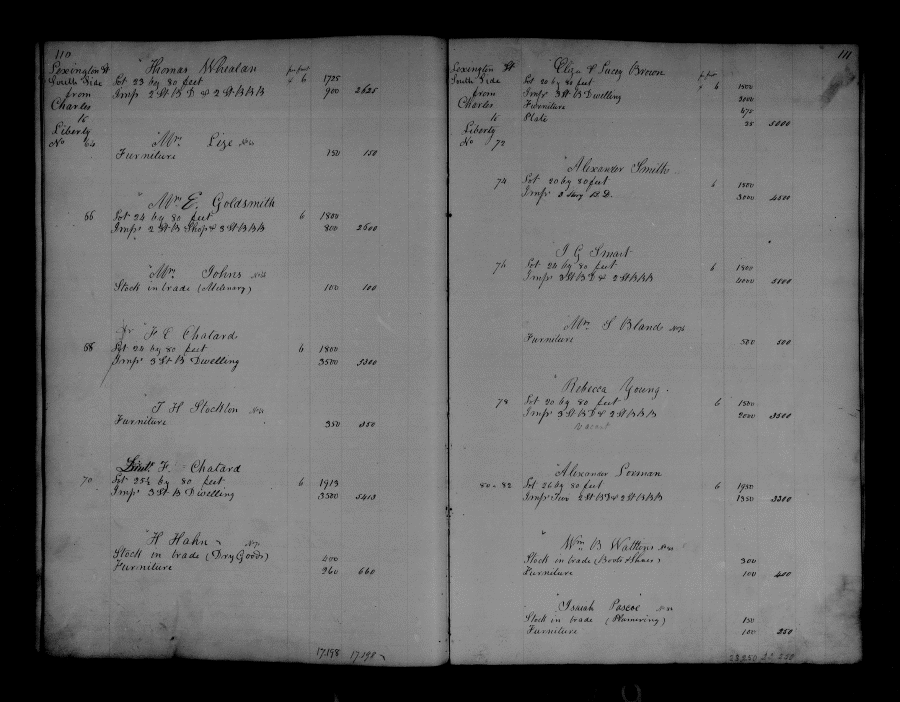 110
Lexington St
South Side
from
Charles
to
Liberty
No 64
Thomas Whealan
per foot
Lot 23 by 80 feet 6 1725
Imps 2 St B D & 2 St B B B 900 2625
Wm Lize No 64
Furniture 150 150
Wm E. Goldsmith
66 Lot 24 by 80 feet 6 1800
Imps 2 St B Shop & 3 St B B B 800 2600
Wm Johns
Stock in trade (Millinary) 100 100
Dr F E Chatard
68 Lot 24 by 80 feet 6 1800
Imps 3 St B Dwelling 3500 5300
T H Stockton
Furniture 350 350
Lieut F. Chatard
70 Lot 25½ by 80 feet 6 1913
Imps 3 St B Dwelling 3500 5413
H Hahn
Stock in trade (Dry Goods) 400
Furniture 260 660
17.198 17.198
111
Lexington St
South Side
from
Charles
to
Liberty
No 72
Eliza & Lucy Brown
Lot 20 by 80 feet 6 1500
Imps 3 St B Dwelling 3000
Furniture 475
Plate 25 5000
Alexander Smith
74 Lot 20 by 80 feet 6 1500
Imps 3 Story B. D. 3000 4500
J G Smart
76 Lot 24 by 80 feet 6 1800
Imps 3 St B D & 2 St B B B 4000 5800
Wm S Bland No 76
Furniture 500 500
Rebecca Young.
78 Lot 20 by 80 feet 6 1500
Imps 3 St B D & 2 St B B B 2000 3500
vacant
Alexander Lorman
80 - 82 Lot 26 by 80 feet 6 1950
Imps Two 2 St B D & 2 St B B B 1350 3300
Wm B Watkins No 80
Stock in trade (Boots & Shoes) 300
Furniture 100 400
Isaiah Pascoe No 82
Stock in trade (Plumering) 150
Furniture 100 250